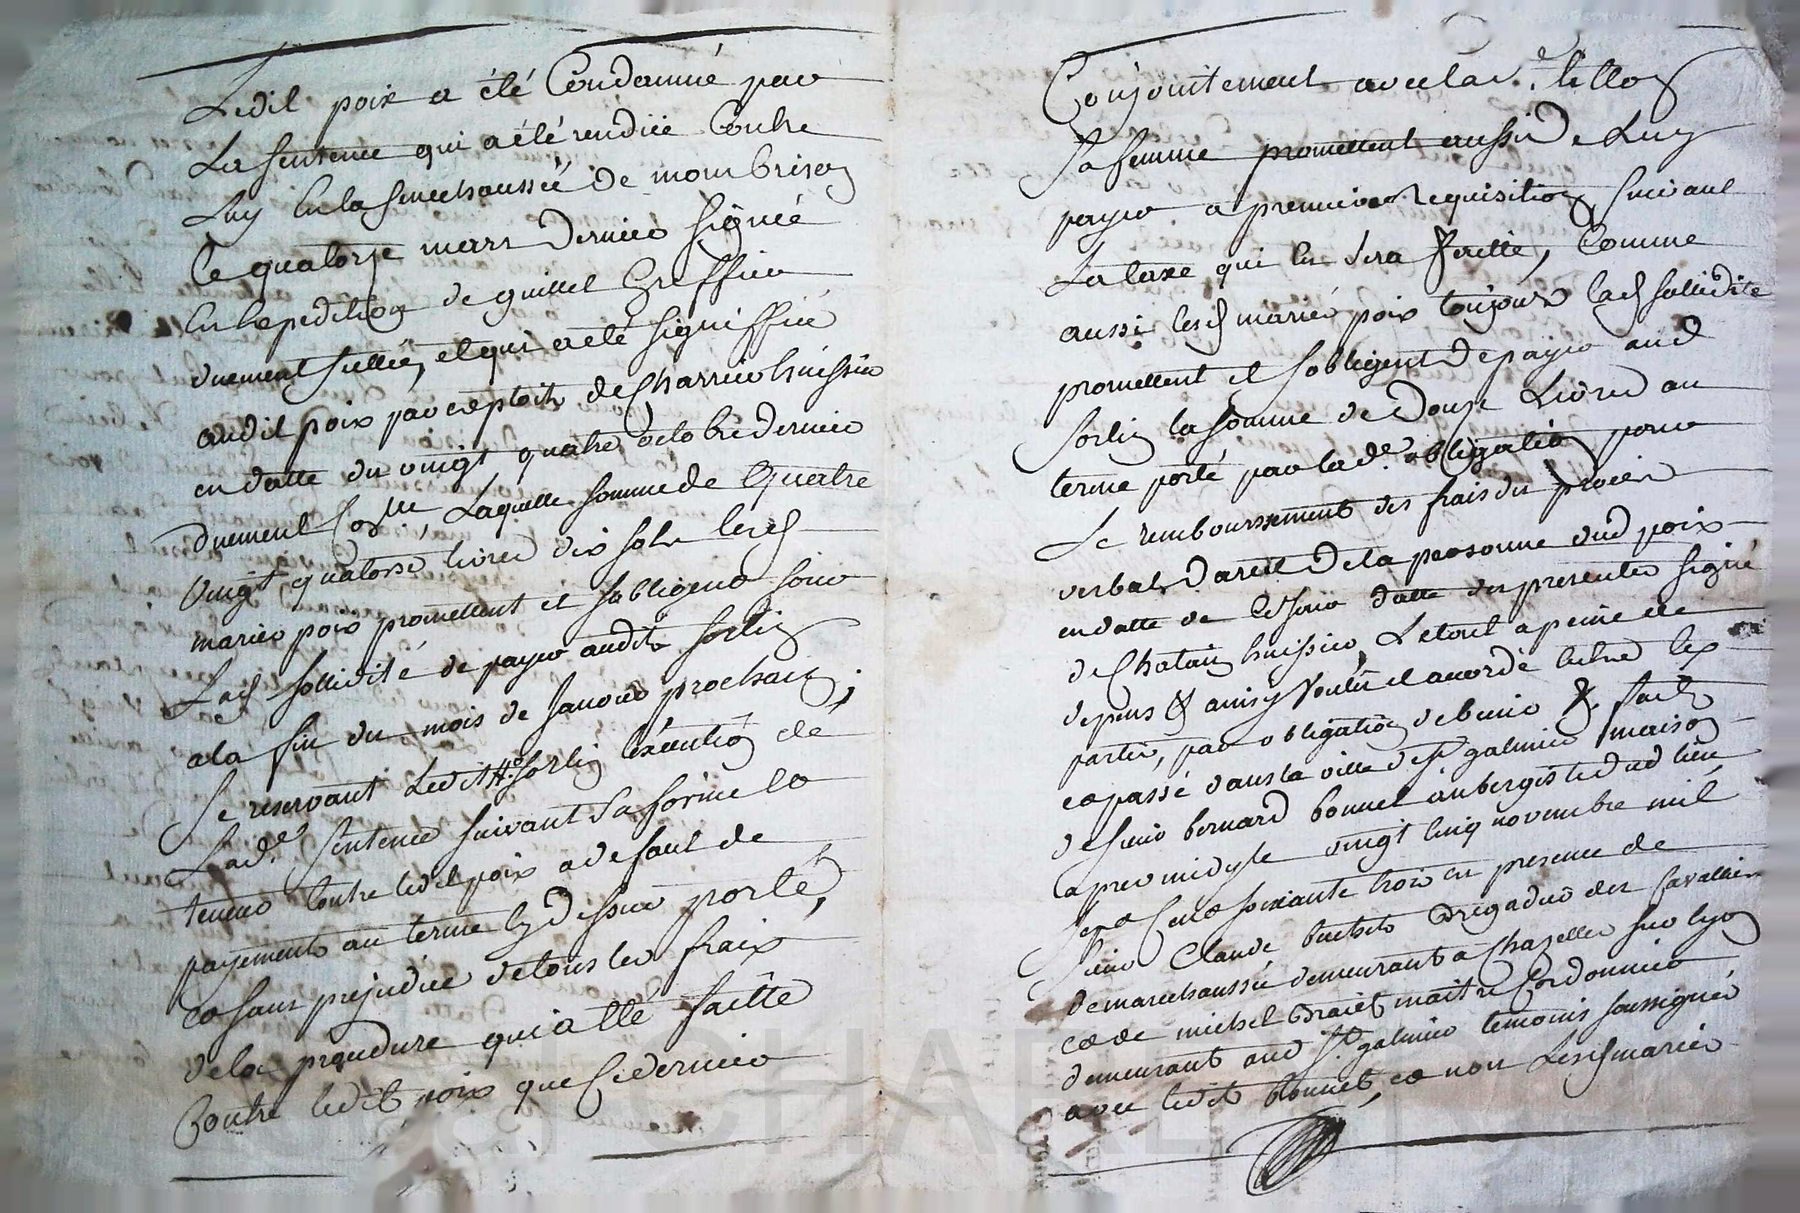 Ledit poix a été Condamné par
La sentence qui a été rendüe Contre
Luy en la senechaussée de mombrison
Le quatorze mars dernier signée
En Expedition de guillet Greffier
duement scellée, et qui a eté signiffiée
audit poix par exploit de Charrier huissier
en datte du vingt quatre octobre dernier
duement Coʳᵉ, Laquelle somme de Quatre
vingt quatorse livres dix sols lesd
mariés poix promettent et sobligent sous
Lad sollidité de payer audit sorlin
a la fin du mois de Janvier prochain,
se reservant Ledit Sʳ sorlin lexécution de
Lad.ᵉ sentence suivant sa forme Et
teneur Contre ledit poix a defaut de
payement au terme cy dessus porté,
et sans prejudice de tous les fraix
de la procedure qui a été faitte
Contre ledit poix que Ce dernier
Conjointement avec lad.ᵉ
sa femme promettent aussi de Luy
payer a premiere requisition suivant
La taxe qui en sera faitte, Comme
aussi lesd mariés poix toujours Lad sollidité
promettent et sobligent de payer aud
sorlin la somme de Douze Livres au
terme porté par lad.ᵉ obligation pour
Le remboursement des frais du procès
verbal Darest De la personne dud poix
en datte de Ce jour datte des presentes signé
de Chatain huissier, Le tout a peine de
depens & ainsy Voulu et accordé entre les
parties, par obligation de biens & fait
et passé dans la ville de sᵗ galmier maison
de sieur bernard bonnet aubergiste dud lieu,
apres midy le vingt Cinq novembre mil
sept Cent soixante trois en presence de
sieur Claude Brigadier des Cavaliers
de marechaussée demeurant a Chazelles sur lyon
et de michel maitre Cordonnier
demeurant aud Sᵗ galmier temoins soussignés
avec ledit bonnet, et non Lesd mariés